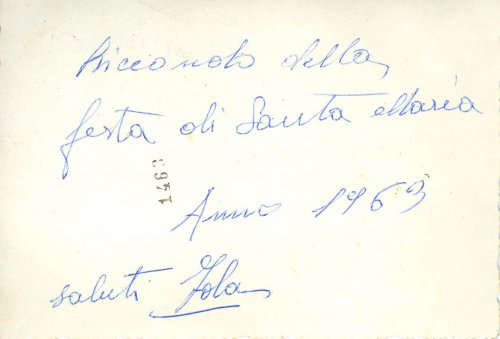 Riccondo della
festa di Santa Maria
1463
Anno 1963
saluti Iola